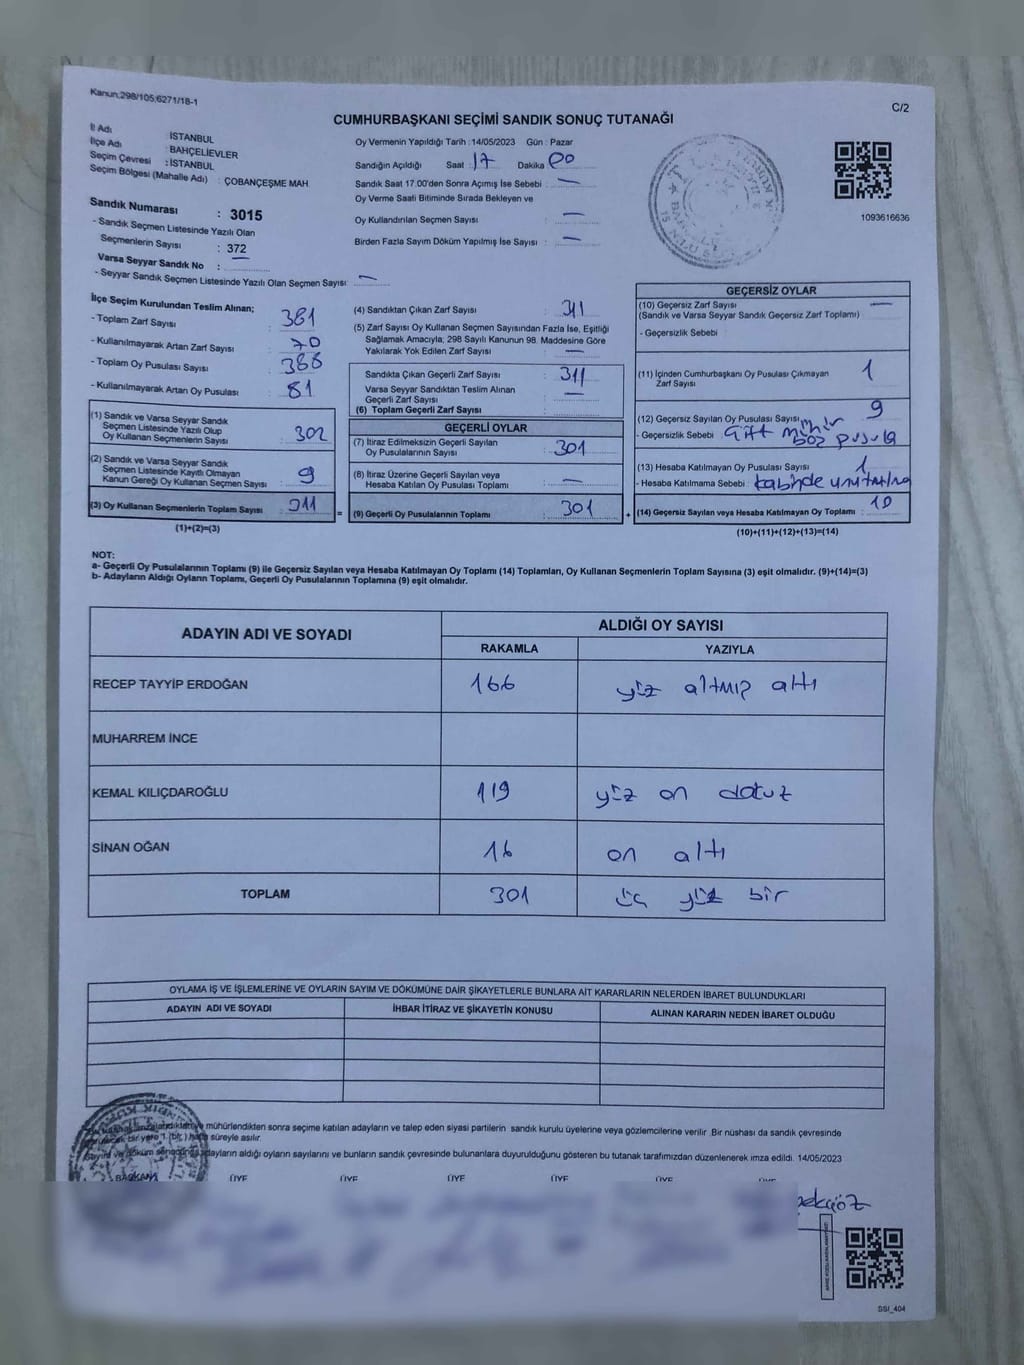 Kanun,298/105,6271/18-1
C/2
CUMHURBAŞKANI SEÇİMİ SANDIK SONUÇ TUTANAĞI
İl Adı : İSTANBUL
İlçe Adı : BAHÇELİEVLER
Seçim Çevresi : İSTANBUL
Seçim Bölgesi (Mahalle Adı) : ÇOBANÇEŞME MAH
Sandık Numarası : 3015
- Sandık Seçmen Listesinde Yazılı Olan
Seçmenlerin Sayısı : 372
Varsa Seyyar Sandık No :
- Seyyar Sandık Seçmen Listesinde Yazılı Olan Seçmen Sayısı: —
Oy Vermenin Yapıldığı Tarih :14/05/2023 Gün : Pazar
Sandığın Açıldığı Saat : 17 Dakika 00
Sandık Saat 17:00'den Sonra Açımış İse Sebebi : —
Oy Verme Saati Bitiminde Sırada Bekleyen ve
Oy Kullandırılan Seçmen Sayısı : —
Birden Fazla Sayım Döküm Yapılmış İse Sayısı : —
1093616636
İlçe Seçim Kurulundan Teslim Alınan;
- Toplam Zarf Sayısı : 381
- Kullanılmayarak Artan Zarf Sayısı : 70
- Toplam Oy Pusulası Sayısı : 388
- Kullanılmayarak Artan Oy Pusulası : 81
(1) Sandık ve Varsa Seyyar Sandık
Seçmen Listesinde Yazılı Olup
Oy Kullanan Seçmenlerin Sayısı : 302
(2) Sandık ve Varsa Seyyar Sandık
Seçmen Listesinde Kayıtlı Olmayan
Kanun Gereği Oy Kullanan Seçmen Sayısı : 9
(3) Oy Kullanan Seçmenlerin Toplam Sayısı : 311 =
(1)+(2)=(3)
(4) Sandıktan Çıkan Zarf Sayısı : 311
(5) Zarf Sayısı Oy Kullanan Seçmen Sayısından Fazla İse, Eşitliği
Sağlamak Amacıyla; 298 Sayılı Kanunun 98. Maddesine Göre
Yakılarak Yok Edilen Zarf Sayısı : —
Sandıkta Çıkan Geçerli Zarf Sayısı : 311
Varsa Seyyar Sandıktan Teslim Alınan
Geçerli Zarf Sayısı : —
(6) Toplam Geçerli Zarf Sayısı :
GEÇERLİ OYLAR
(7) İtiraz Edilmeksizin Geçerli Sayılan
Oy Pusulalarının Sayısı : 301
(8) İtiraz Üzerine Geçerli Sayılan veya
Hesaba Katılan Oy Pusulası Toplamı : —
(9) Geçerli Oy Pusulalarının Toplamı : 301 +
GEÇERSİZ OYLAR
(10) Geçersiz Zarf Sayısı —
(Sandık ve Varsa Seyyar Sandık Geçersiz Zarf Toplamı)
- Geçersizlik Sebebi :
(11) İçinden Cumhurbaşkanı Oy Pusulası Çıkmayan
Zarf Sayısı : 1
(12) Geçersiz Sayılan Oy Pusulası Sayısı : 9
- Geçersizlik Sebebi : Çift mühür
boş pusula
(13) Hesaba Katılmayan Oy Pusulası Sayısı : 1
- Hesaba Katılmama Sebebi : kabinde
(14) Geçersiz Sayılan veya Hesaba Katılmayan Oy Toplamı : 10
(10)+(11)+(12)+(13)=(14)
NOT:
a- Geçerli Oy Pusulalarının Toplamı (9) ile Geçersiz Sayılan veya Hesaba Katılmayan Oy Toplamı (14) Toplamları, Oy Kullanan Seçmenlerin Toplam Sayısına (3) eşit olmalıdır. (9)+(14)=(3)
b- Adayların Aldığı Oyların Toplamı, Geçerli Oy Pusulalarının Toplamına (9) eşit olmalıdır.
ADAYIN ADI VE SOYADI
ALDIĞI OY SAYISI
RAKAMLA YAZIYLA
RECEP TAYYİP ERDOĞAN 166 yüz altmış altı
MUHARREM İNCE
KEMAL KILIÇDAROĞLU 119 yüz on dokuz
SİNAN OĞAN 16 on altı
TOPLAM 301 üç yüz bir
OYLAMA İŞ VE İŞLEMLERİNE VE OYLARIN SAYIM VE DÖKÜMÜNE DAİR ŞİKAYETLERLE BUNLARA AİT KARARLARIN NELERDEN İBARET BULUNDUKLARI
ADAYIN ADI VE SOYADI İHBAR İTİRAZ VE ŞİKAYETİN KONUSU ALINAN KARARIN NEDEN İBARET OLDUĞU
mühürlendikten sonra seçime katılan adayların ve talep eden siyasi partilerin sandık kurulu üyelerine veya gözlemcilerine verilir .Bir nüshası da sandık çevresinde
bir yere 1 (bir) hafta süreyle asılır.
Sayım ve döküm sonucunda adayların aldığı oyların sayılarını ve bunların sandık çevresinde bulunanlara duyurulduğunu gösteren bu tutanak tarafımızdan düzenlenerek imza edildi. 14/05/2023
BAŞKAN ÜYE ÜYE ÜYE ÜYE ÜYE
SSI_404